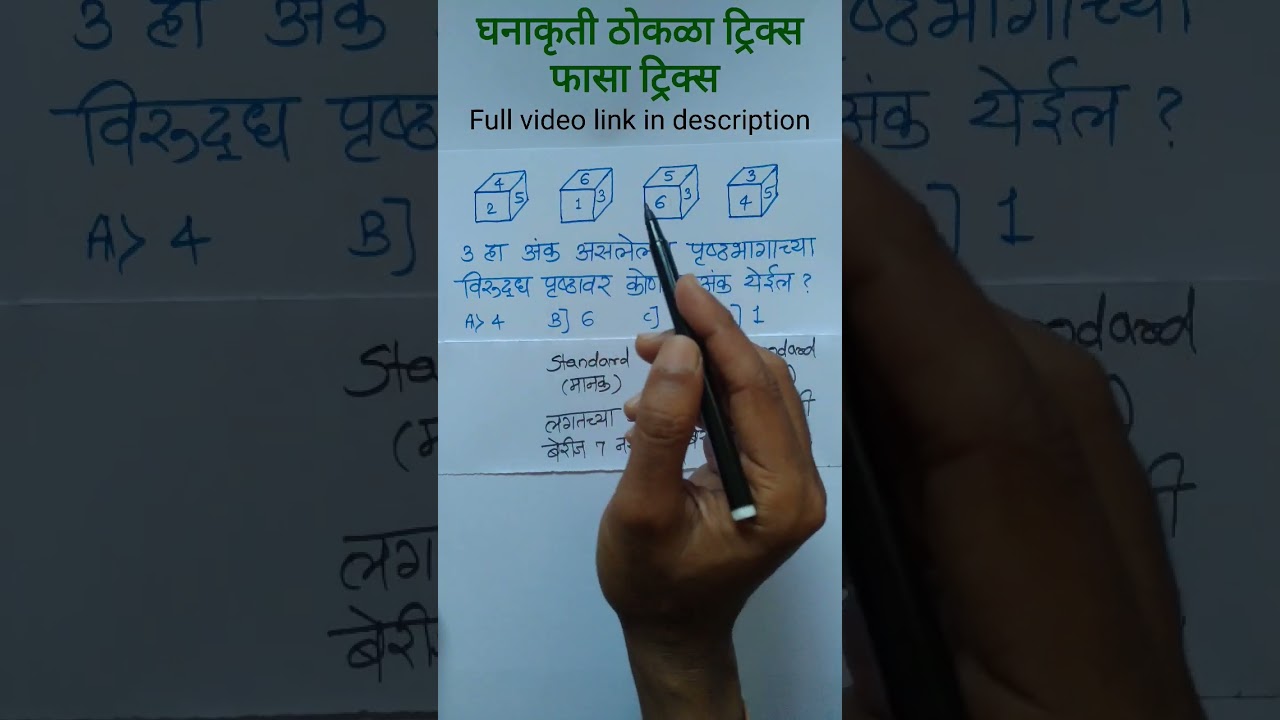 घनाकृती ठोकळा ट्रिक्स
फासा ट्रिक्स
Full video link in description
4 2 5 6 1 3 5 6 3 3 4 5
3 हा अंक असलेल्या पृष्ठभागाच्या
विरुद्ध पृष्ठावर अंक येईल ?
A> 4 B] 6 C] ] 1
Standard
(मानक)
लगतच्या
बेरीज 7